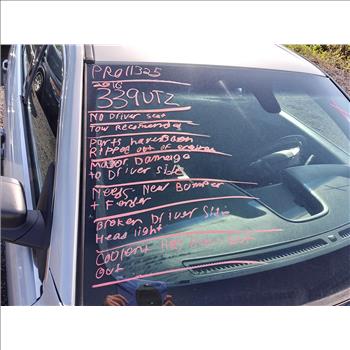 PRO11325
2016
339UTZ
No Driver seat
Tow Recomended
Parts have Been
Ripped out of engine
Major Damage
to Driver side
Needs New Bumper
+ Fender
Broken Driver Side
Head light
Coolant Has
Out